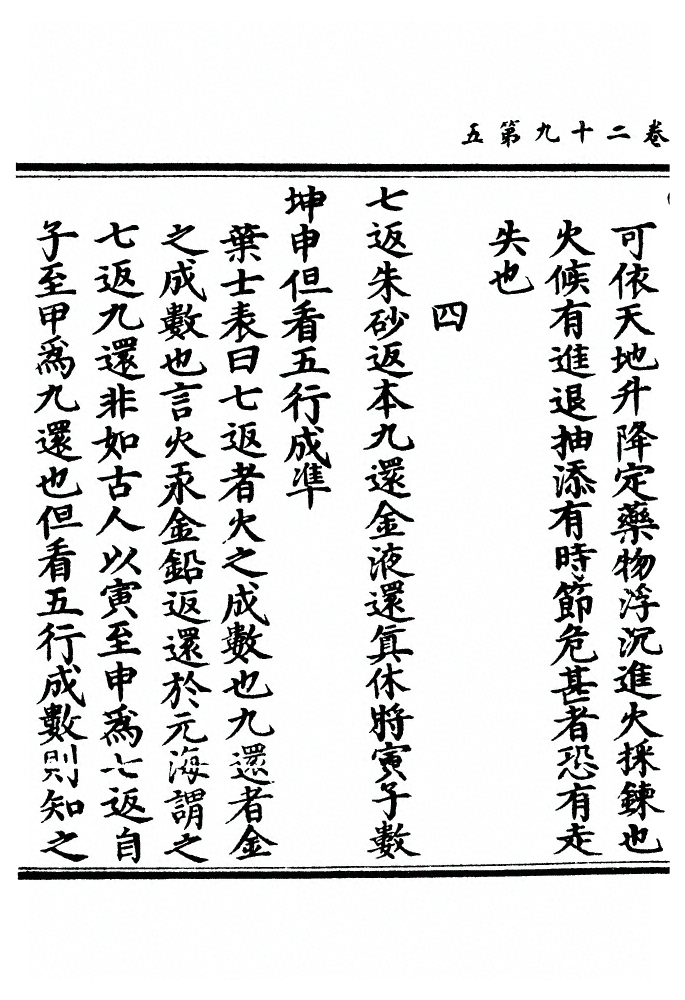 卷二十九第五
可依天地升降定藥物浮沉進火採鍊也
火候有進退抽添有時節危甚者恐有走
失也
四
七返朱砂返本九還金液還眞休將寅子數
坤申但看五行成準
葉士表曰七返者火之成數也九還者金
之成數也言火汞金鉛返還於元海謂之
七返九還非如古人以寅至申爲七返自
子至甲爲九還也但看五行成數則知之